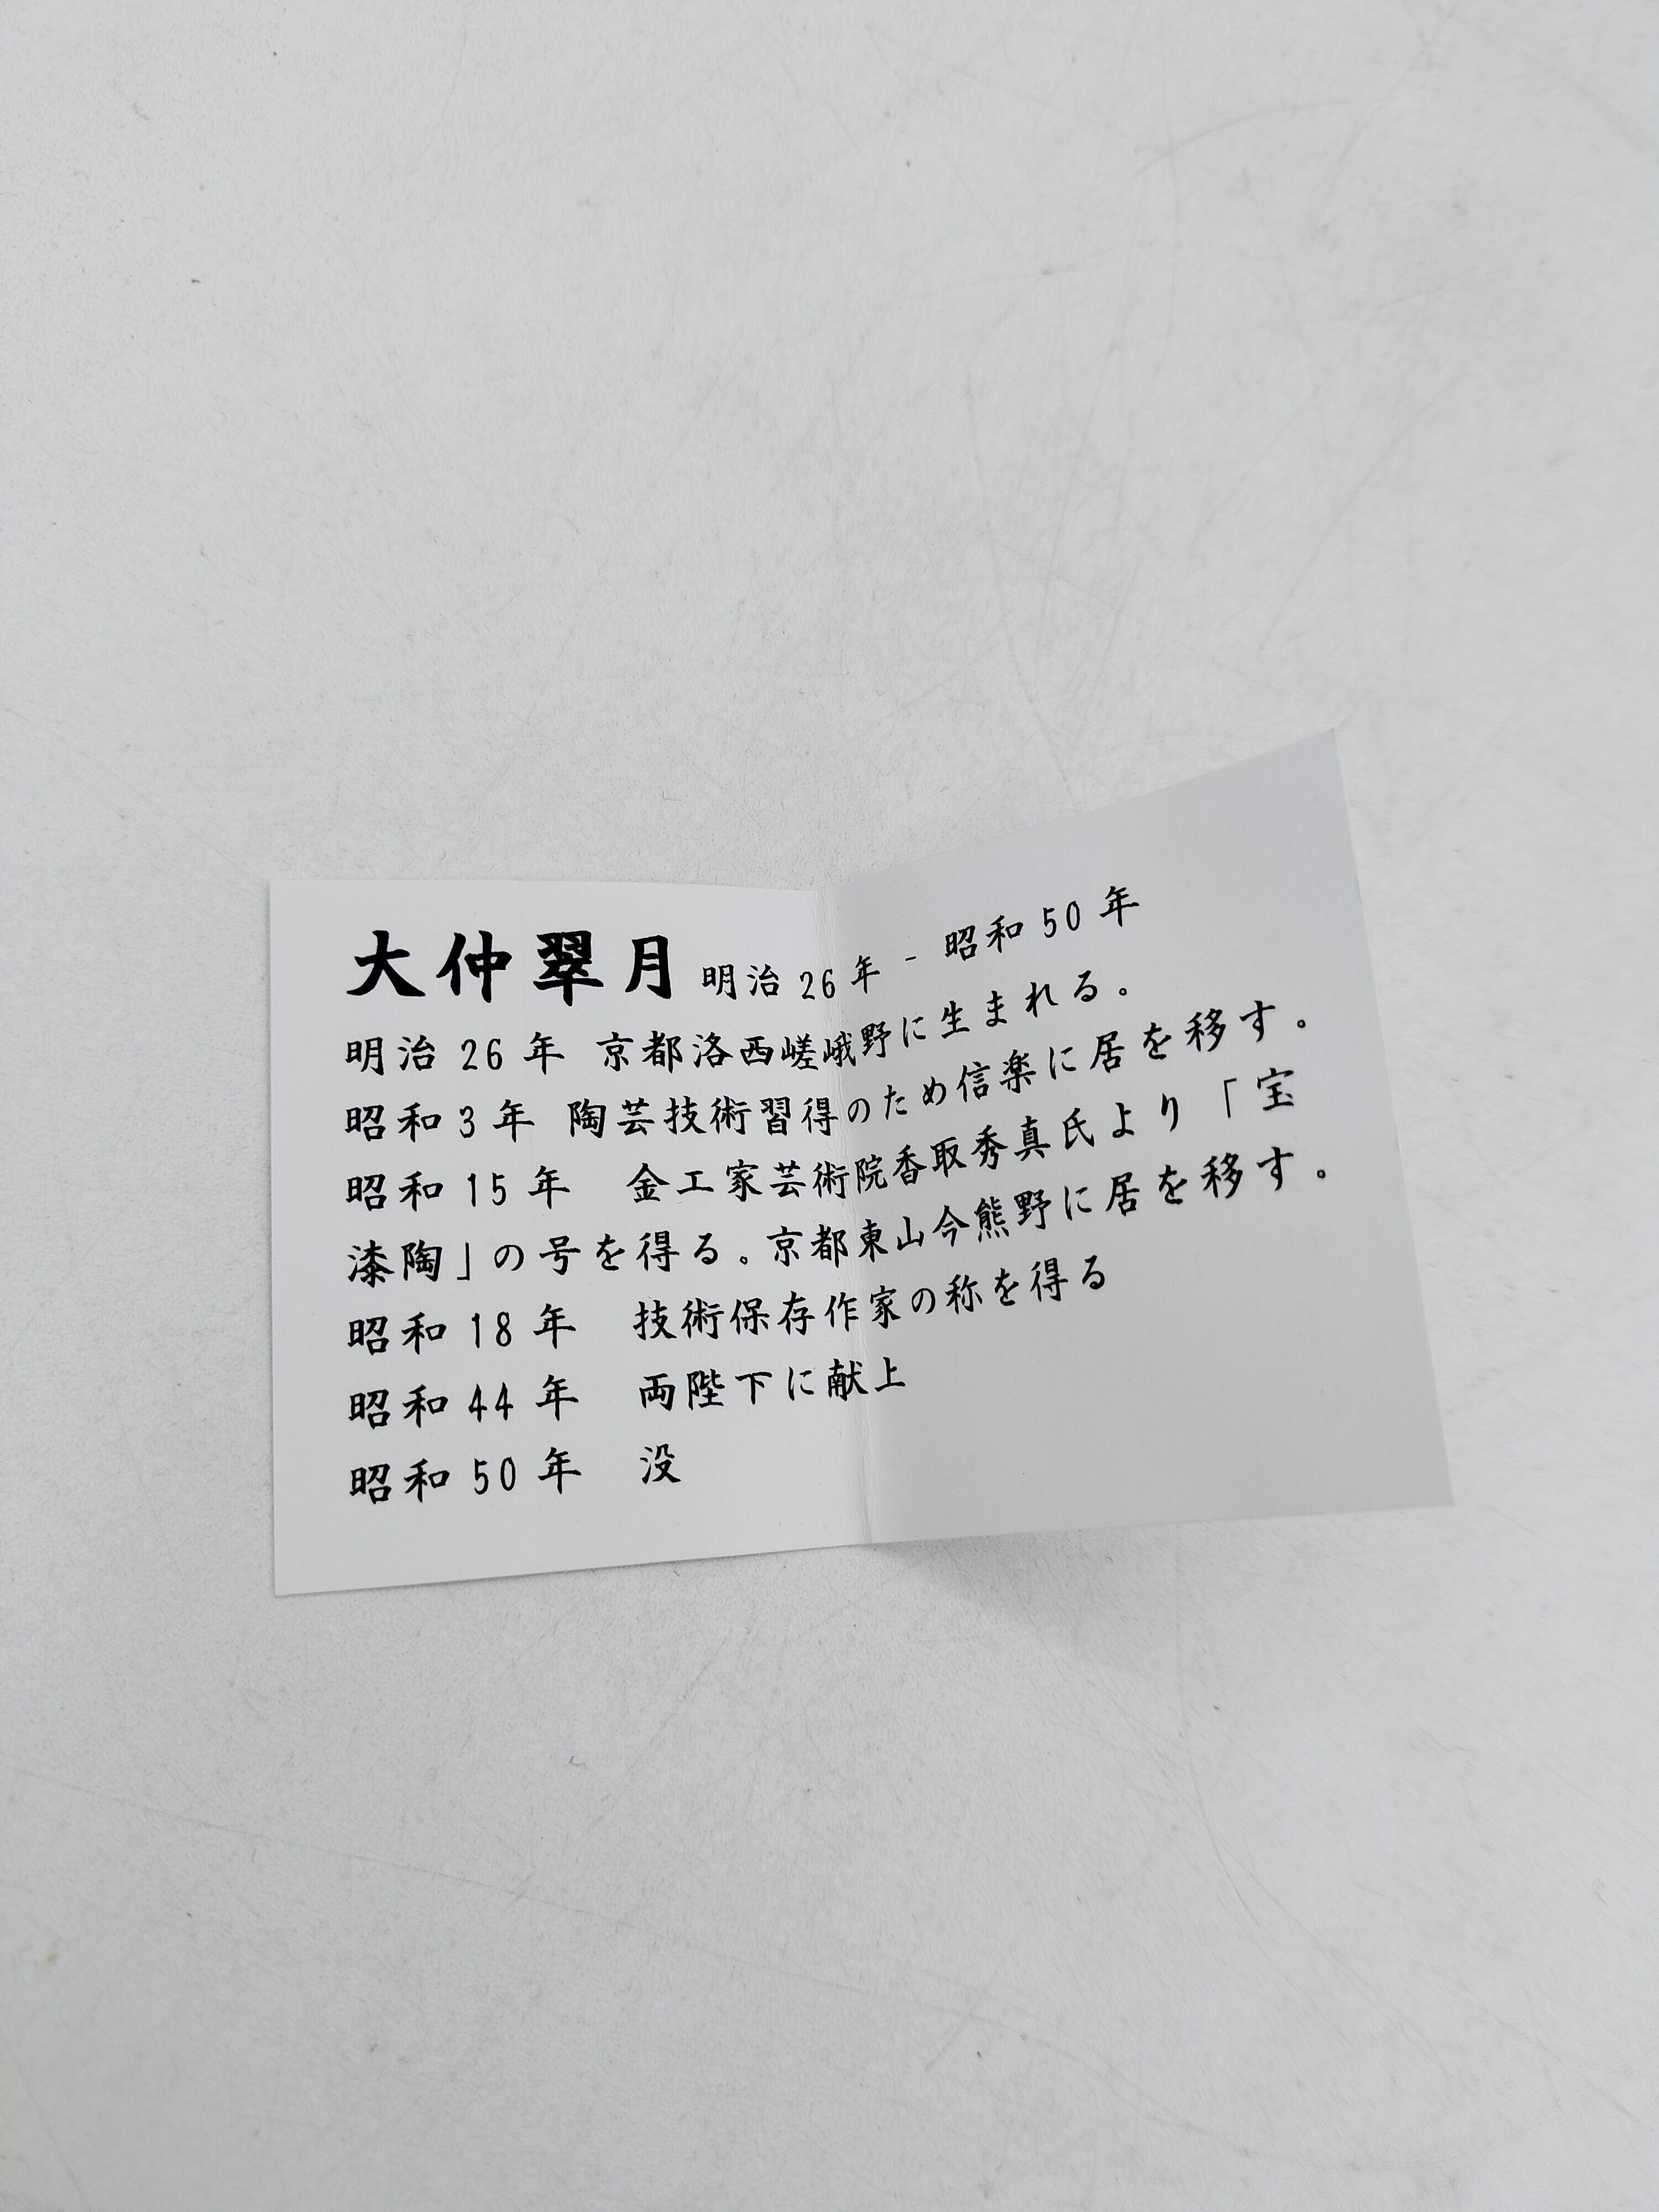 大仲翠月 明治26年 - 昭和50年
明治 26 年 京都洛西嵯峨野に生まれる。
昭和 3 年 陶芸技術習得のため信楽に居を移す。
昭和 15 年　金工家芸術院香取秀真氏より「宝
漆陶」の号を得る。京都東山今熊野に居を移す。
昭和 18 年　技術保存作家の称を得る
昭和 44 年　両陛下に献上
昭和 50 年　没